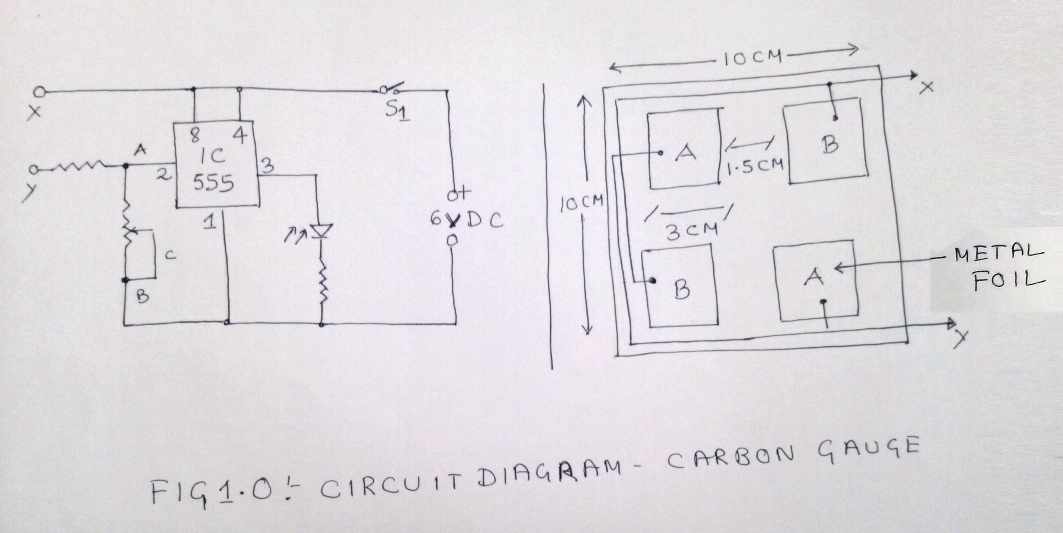 X
Y
A
2
8 4
IC
555
3
1
C
B
S1
+
6V DC
10CM
X
10CM
A
1.5CM
B
3CM
B
A
METAL
FOIL
Y
FIG1.0:- CIRCUIT DIAGRAM - CARBON GAUGE